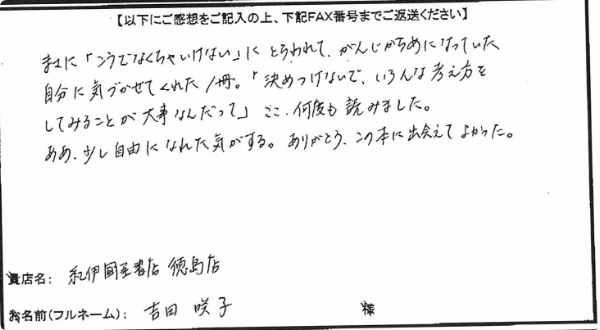 【以下にご感想をご記入の上、下記FAX番号までご返送ください】
まさに「こうでなくちゃいけない」に とらわれて、がんじがらめになっていた
自分に気づかせてくれた1冊。「決めつけないで、いろんな考え方を
してみることが大事なんだって」 ここ、何度も読みました。
ああ、少し自由になれた気がする。ありがとう、この本に出会えてよかった。
貴店名： 紀伊國屋書店 徳島店
お名前(フルネーム)： 吉田 咲子 様